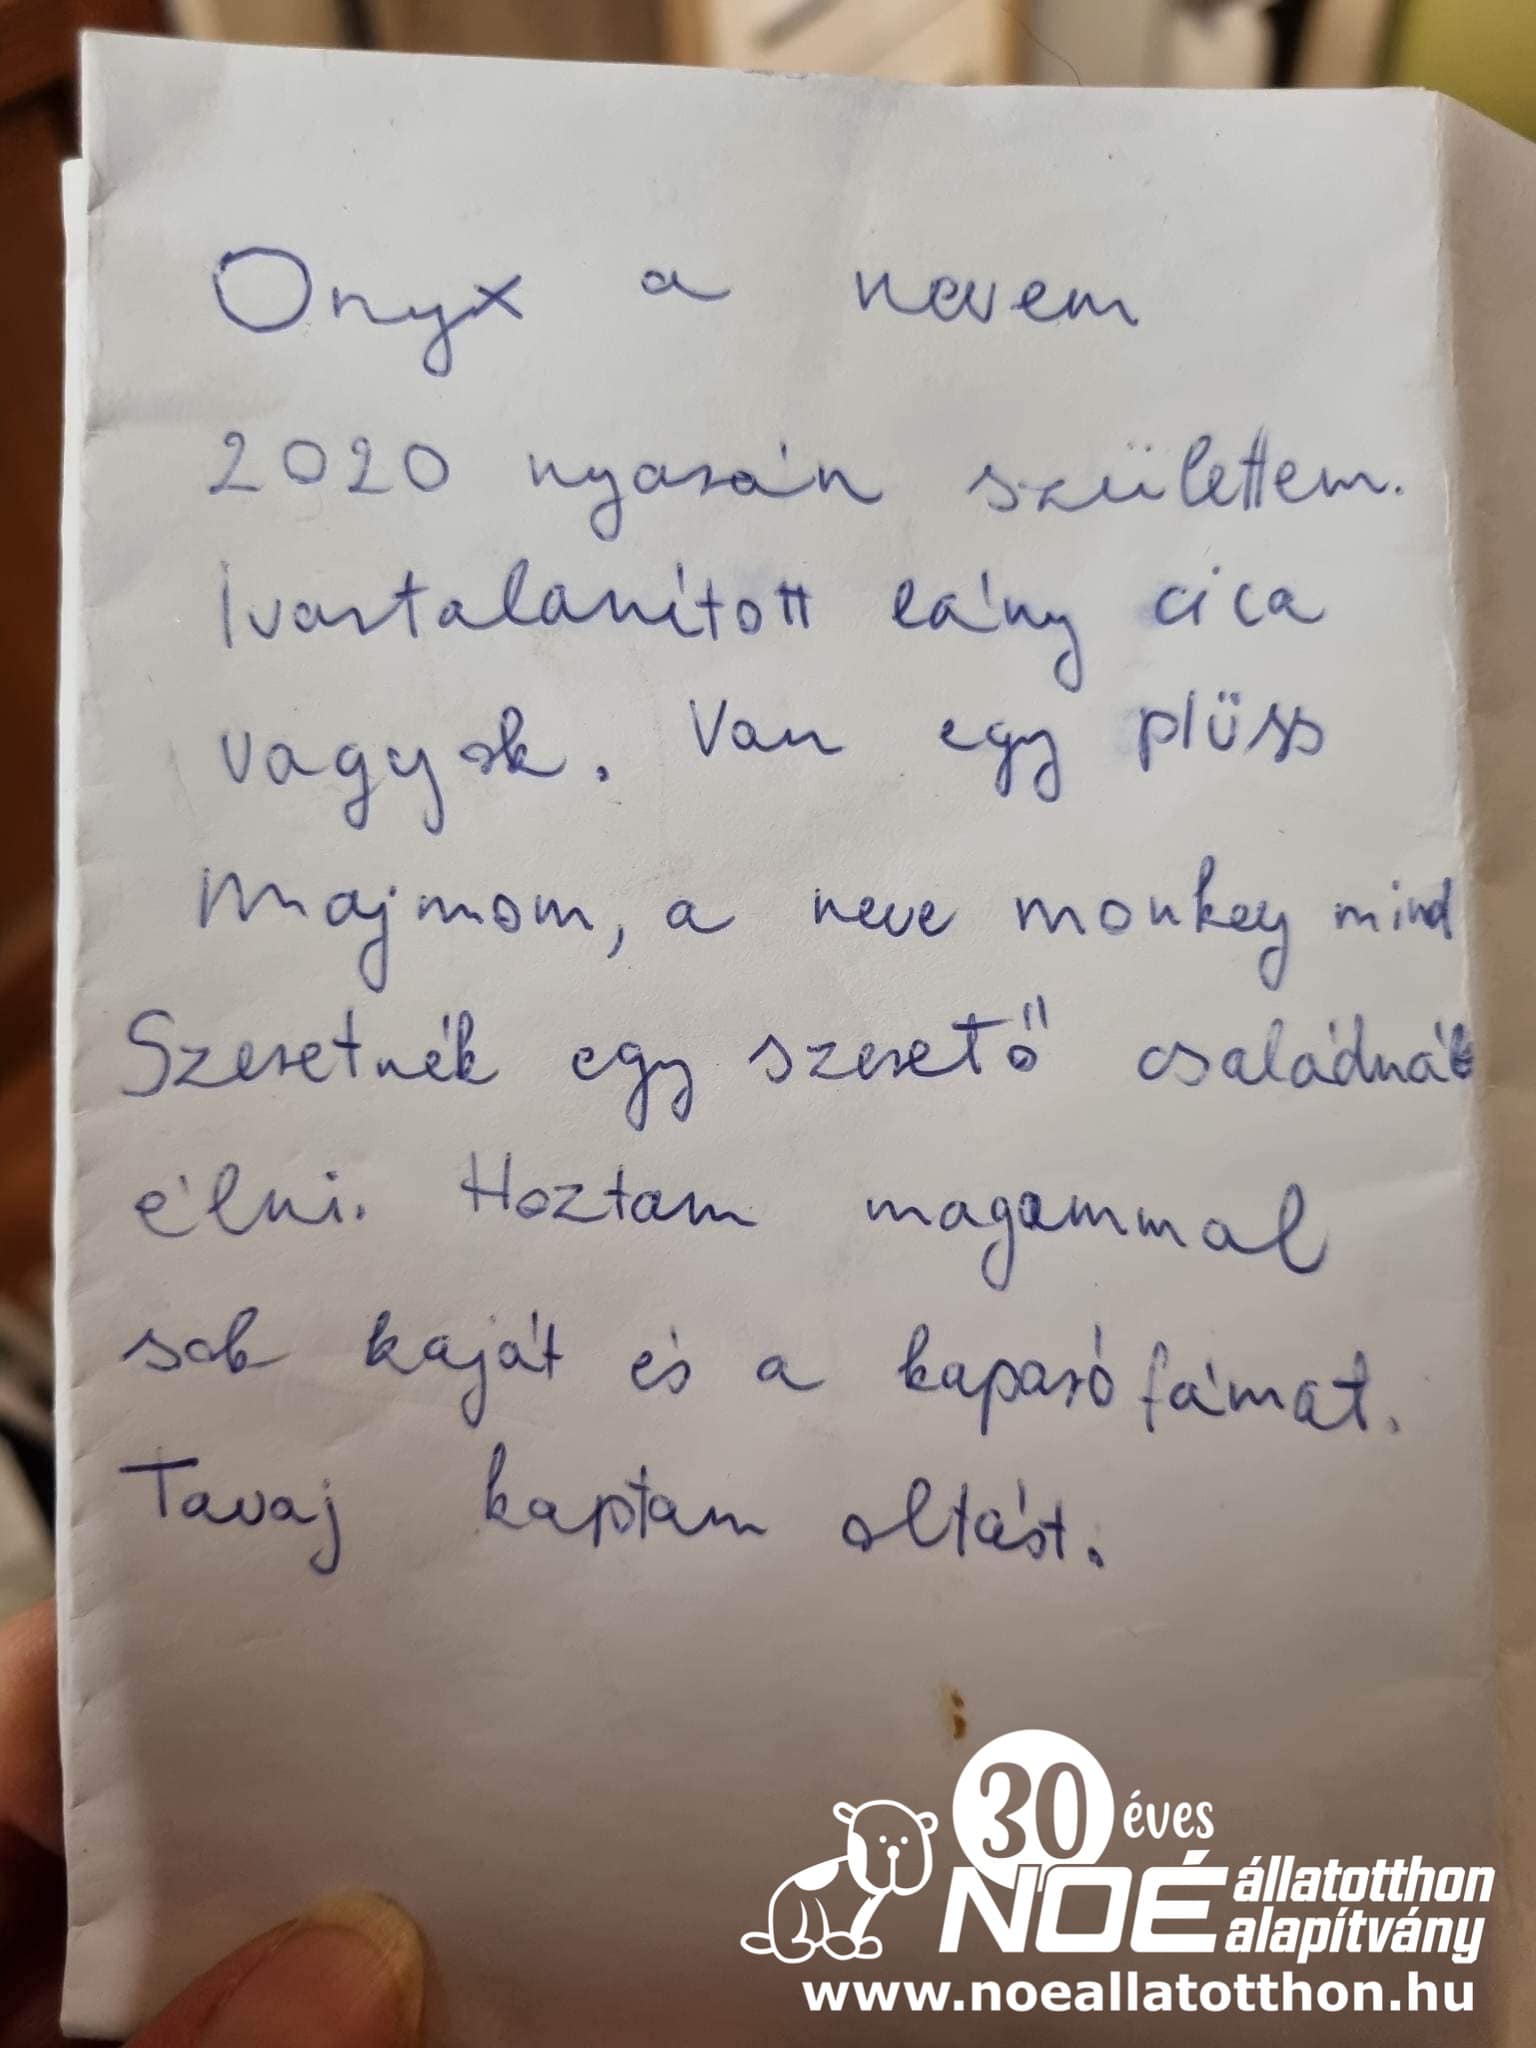 Onyx a nevem
2020 nyarán születtem.
Ivartalanított lány cica
vagyok. Van egy plüss
majmom, a neve monkey mind
Szeretnék egy szerető családnál
élni. Hoztam magammal
sok kaját és a kaparó fámat.
Tavaj kaptam oltást.
30 éves
NOÉ állatotthon
alapítvány
www.noeallatotthon.hu